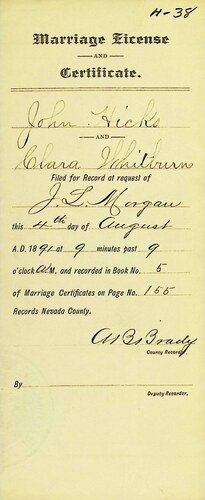 H-38
Marriage License
AND
Certificate.
John Hicks
AND
Clara Whitburn
Filed for Record at request of
J. L. Morgan
this 4th day of August
A.D. 1891 at 9 minutes past 9
o'clock A.M. and recorded in Book No. 5
of Marriage Certificates on Page No. 155
Records Nevada County.
Brady
County Recorder.
By
Deputy Recorder.